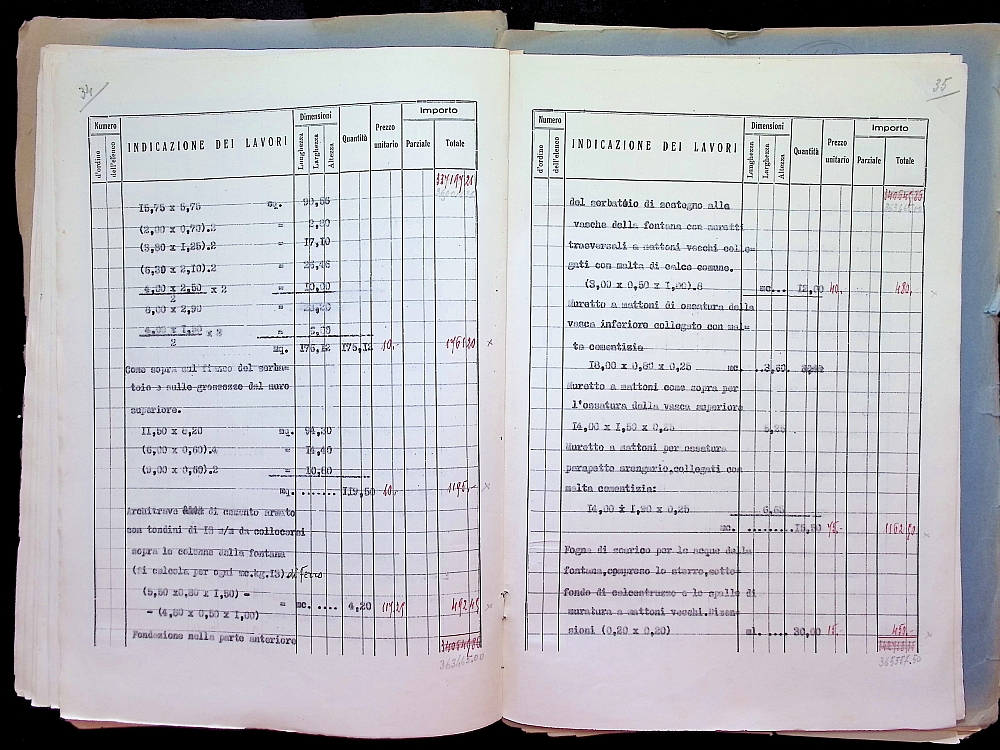 34
Numero
d'ordine
dell'elenco
INDICAZIONE DEI LAVORI
Dimensioni
Lunghezza
Larghezza
Altezza
Quantità
Prezzo unitario
Importo
Parziale
Totale
15,75 x 5,75 mq. 90,56
(2,00 x 0,70).2 = 2,80
(3,80 x I,25).2 = 17,10
(6,30 x 2,10).2 = 26,46
4,00 x 2,50 x 2 = 10,00
2
8,00 x 2,90 =
x 2 =
2
mq. 176,12 175,12 10,-
Come sopra sul fianco del serba-
toio e sulle grossezze del muro
superiore.
II,50 x 8,20 mq. 94,30
(6,00 x 0,60).4 = 14,40
(9,00 x 0,60).2 = 10,80
mq. ....... 119,50 10,- 1195,-
Architrave di cemento armato
con tondini di 18 m/m da collocarsi
sopra le colonne dalla fontana
(Si calcola per ogni mc.kg.I3) di ferro
(5,50 x0,80 x I,50) -
- (4,50 x 0,50 x I,00) = mc. .... 4,20
Fondazione nella parte anteriore
363665.00
35
Numero
d'ordine
dell'elenco
INDICAZIONE DEI LAVORI
Dimensioni
Lunghezza
Larghezza
Altezza
Quantità
Prezzo unitario
Importo
Parziale
Totale
del serbatoio di sostegno alle
vasche della fontana con muretti
trasversali a mattoni vecchi colle=
gati con malta di calce comune.
(3,00 x 0,50 x I,00).8 mc... 12,00 40,- 480,-
Muretto a mattoni di ossatura della
vasca inferiore collegato con mal=
ta cementizia
18,00 x 0,80 x 0,25 mc. ..3,60
Muretto a mattoni come sopra per
l'ossatura della vasca superiore
I4,00 x I,50 x 0,25 5,25
Muretto a mattoni per ossatura
parapetto arengario,collegati con
malta cementizia:
I4,00 x I,90 x 0,25 6,65
mc. .......15,50 75,- 1162,50
Fogna di scarico per le acque della
fontana,compreso lo sterro,sotto=
fondo di calcestruzzo e le spalle di
muratura a mattoni vecchi.Dimen=
sioni (0,20 x 0,20) ml. .... 30,00 15,- 450,-